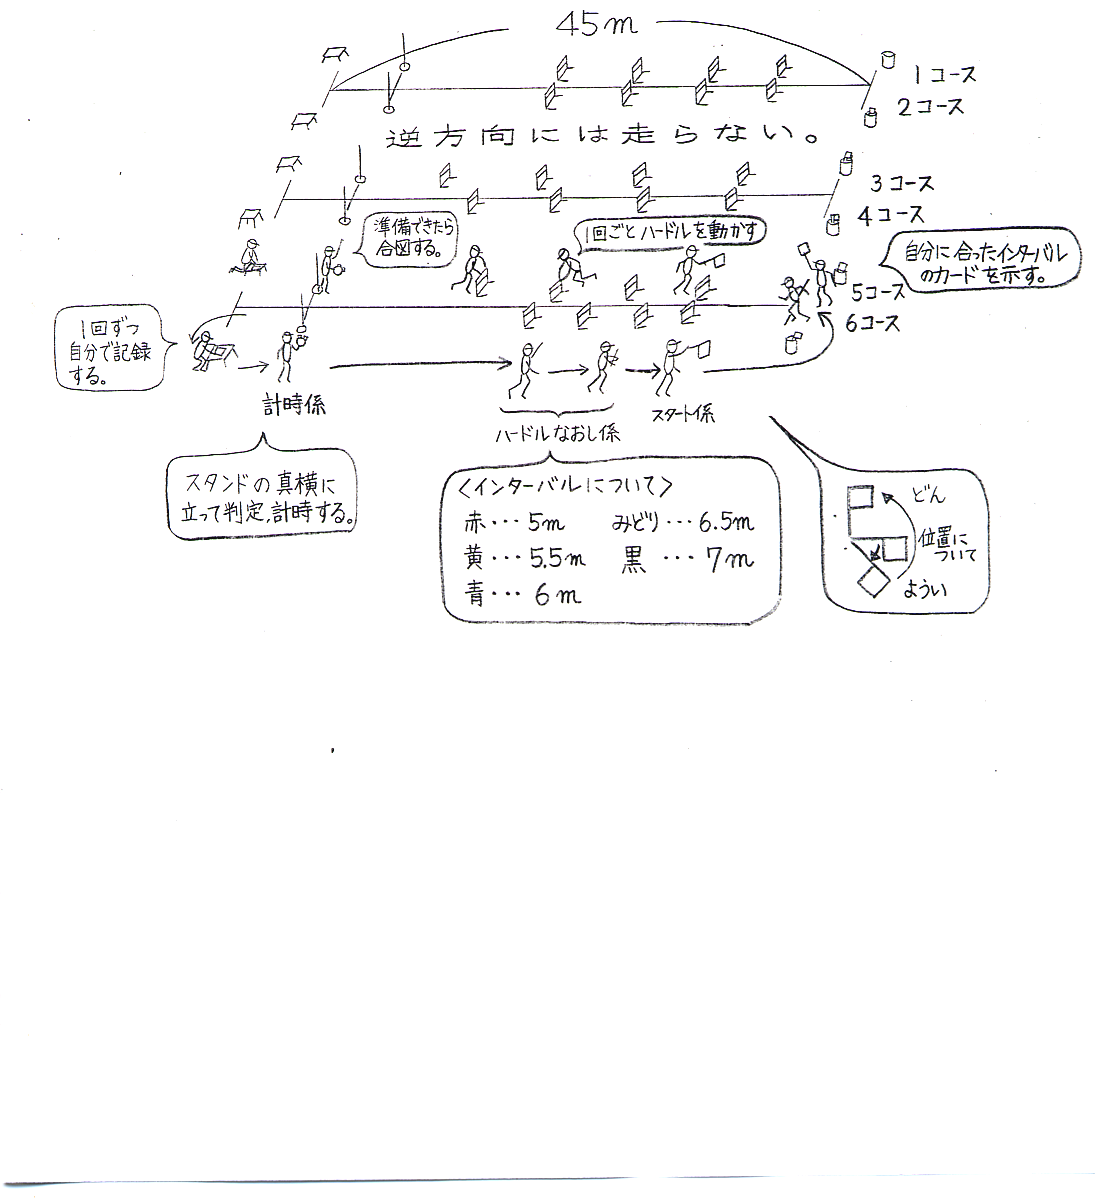 45m
1コース
2コース
逆方向には走らない。
3コース
4コース
準備できたら
合図する。
1回ごとハードルを動かす
自分に合ったインターバル
のカードを示す。
5コース
6コース
1回ずつ
自分で記録
する。
計時係
ハードルなおし係
スタート係
スタンドの真横に
立って判定、計時する。
〈インターバルについて〉
赤・・・5m みどり・・・6.5m
黄・・・5.5m 黒・・・7m
青・・・6m
どん
位置に
ついて
ようい